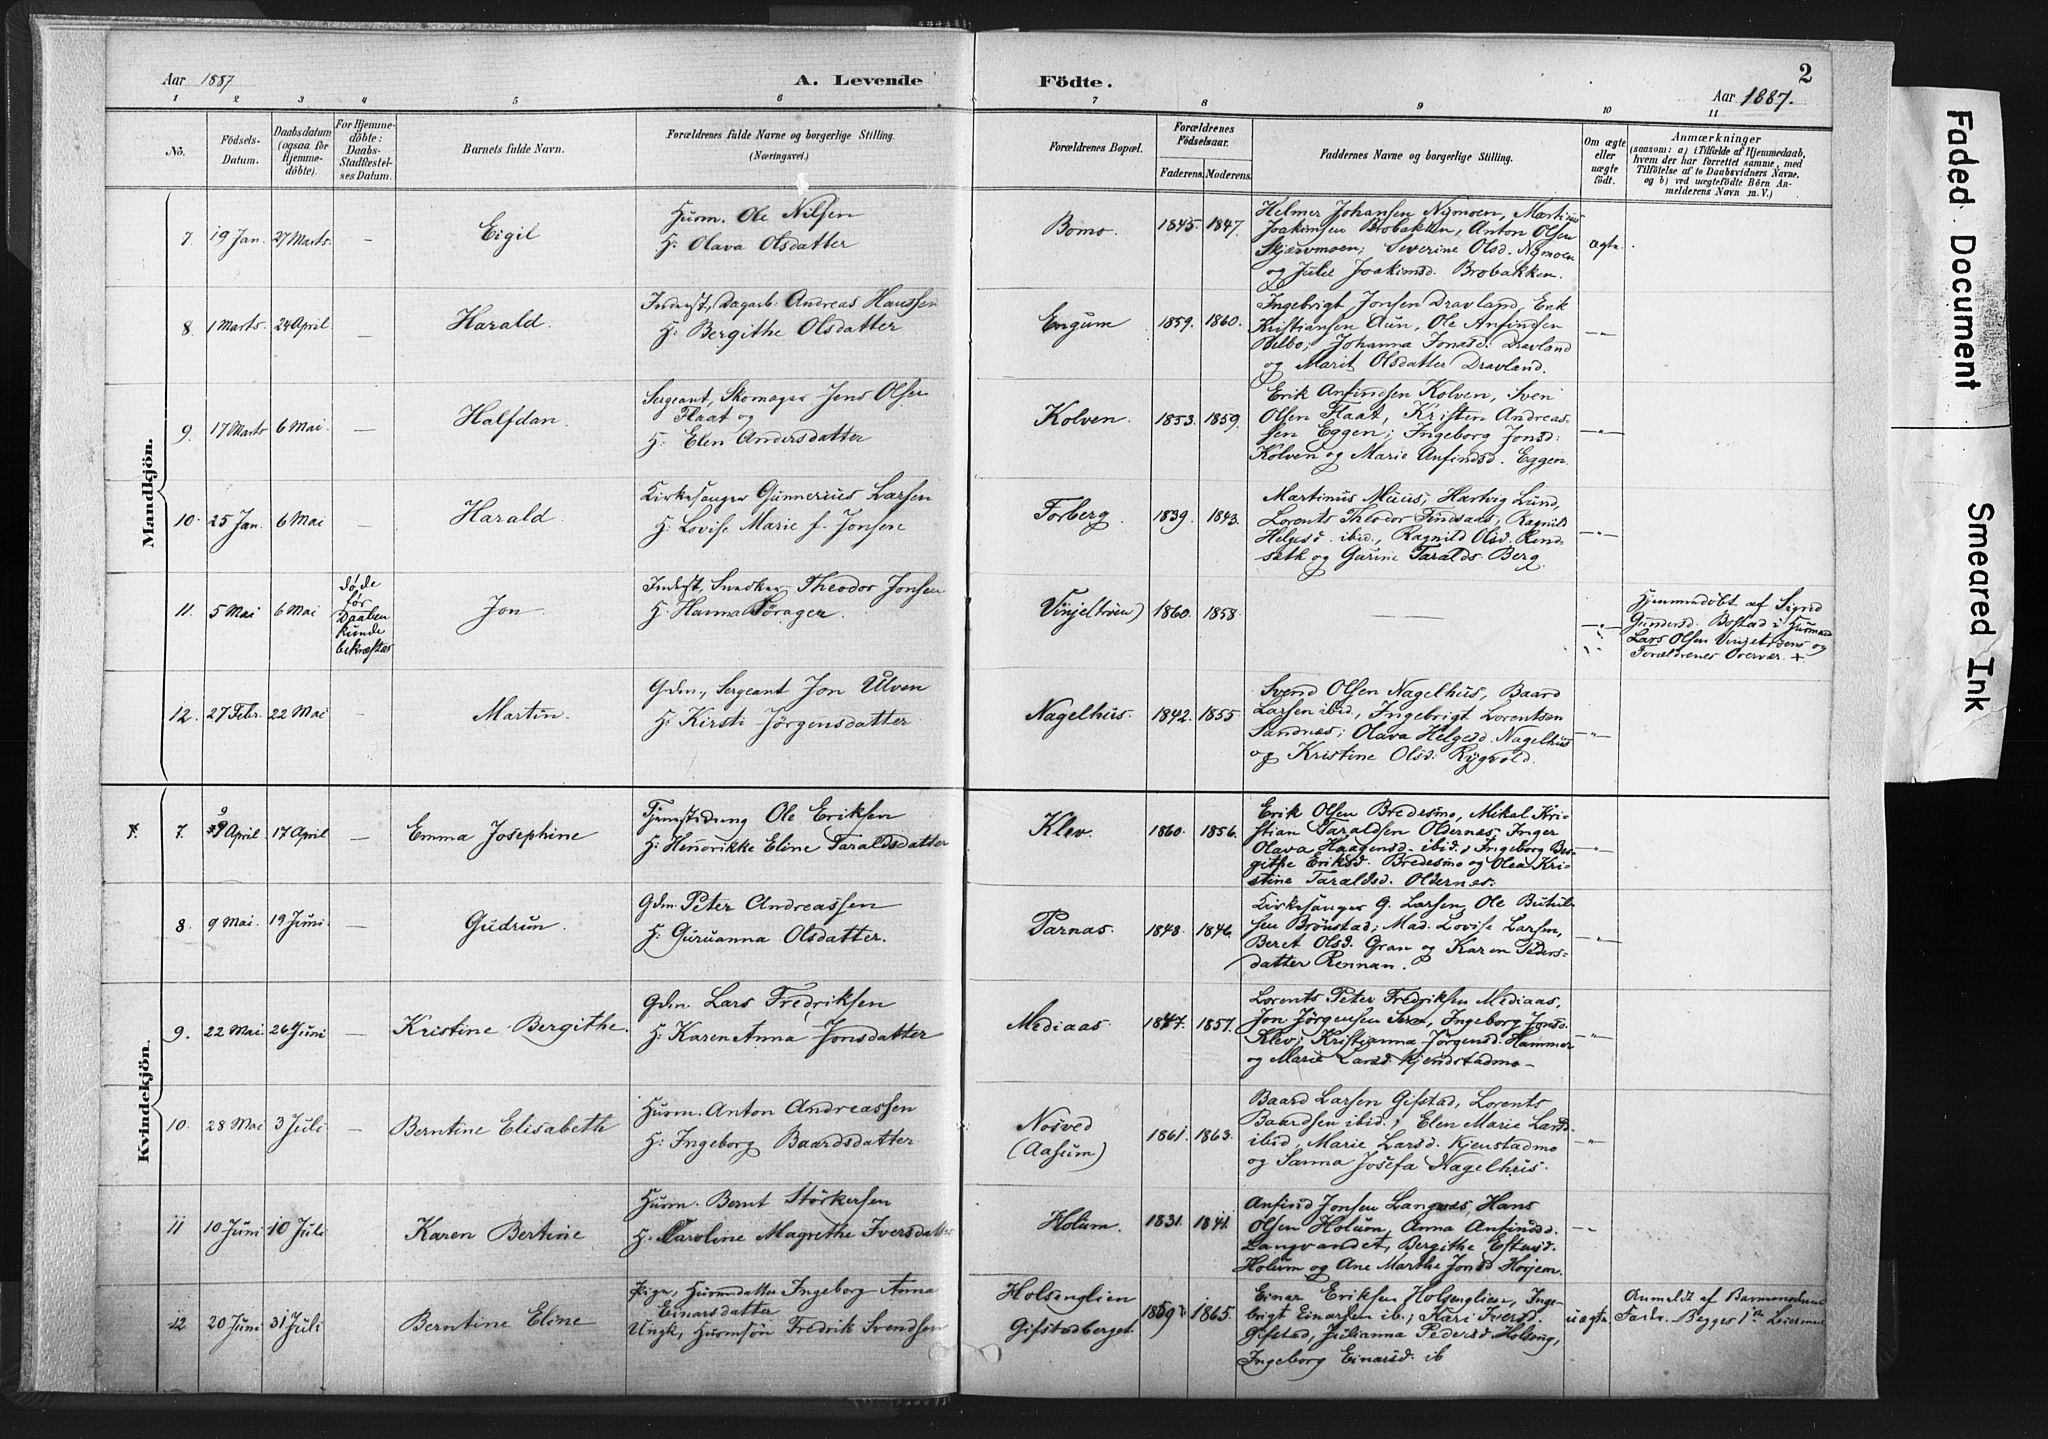 Aar 1887
A. Levende
Födte.
2
Aar 1887.
1 2 3 4 5 6 7 8 9 10 11
No.
Födsels-
Datum.
Daabsdatum
(ogsaa for
Hjemme-
döbte).
For Hjemme-
döbte:
Daabs-
Stadfæstel-
ses Datum.
Barnets fulde Navn.
Forældrenes fulde Navne og borgerlige Stilling.
(Næringsvei.)
Forældrenes Bopæl.
Forældrenes
Födselsaar.
Faderens. Moderens.
Faddernes Navne og borgerlige Stilling.
Om ægte
eller
uægte
født.
Anmærkninger
(saasom: a) i Tilfælde af Hjemmedaab,
hvem der har forrettet samme, med
Tilföielse af to Daabsvidners Navne.
og b) ved uægtefödte Börn An-
melderens Navn m. V.)
Mandkjön.
7. 19 Jan. 27 Marts. — Eigil
Huom. Ole Nilsen
H: Olava Olsdatter
Bomo. 1845. 1847.
Helmer Johansen Nymoen, Martinus
Joakimsen Brobakken, Anton Olsen
Skjævmoen; Severine Olsd. Nymoen
og Julie Joakimsd. Brobakken.
ægte.
8. 1 Marts. 24 April — Harald.
Inderst, Dagarb. Andreas Hanssen
H: Bergithe Olsdatter
Engum 1859. 1860.
Ingebrigt Jonsen Dravland, Erik
Kristiansen Aun, Ole Anfindsen
Bilbo; Johanna Jonasd: Dravland
og Marit Olsdatter Dravland.
—"—
9. 17 Marts 6 Mai — Halfdan.
Sergeant, Skomager Jens Olsen
Flaat og
H: Elen Andersdatter
Kolven. 1853. 1859.
Erik Anfindsen Kolven, Sven
Olsen Flaat, Kristen Andreas-
sen Eggen; Ingeborg Jonsd:
Kolven og Marie Anfindsd. Eggen.
—"—
10. 25 Jan. 6 Mai — Harald.
Kirkesanger Gunnerius Larsen
H: Lovise Marie f. Jonsen
Forberg. 1839. 1843.
Martinus Muus, Hartvig Lund,
Lorents Theodor Findsaas, Ragnild
Helgesd. ibid., Ragnild Olsd. Rend-
sæth og Gurine Taralds. Berg.
—"—
11. 5 Mai 6 Mai
døde
før
Daaben
kunde
bekræftes
Jon
Inderst, Snedker Theodor Jonsen
H: Hanna Törager.
Vinje(trøen) 1860. 1858. —
—"—
Hjemmedöbt af Sigrid
Gundersd. Bostad i Husmand
Lars Olsen Vinjetrøens og
Forældrenes Overvær. +
12. 27 Febr. 22 Mai — Martin.
Gdm., Sergeant Jon Ulven
H: Kirsti Jørgensdatter.
Nagelhus. 1842. 1855
Svend Olsen Nagelhus, Baard
Larsen ibid., Ingebrigt Lorentsen
Sandnes; Olava Helgesd. Nagelhus
og Kristine Olsd: Rygvold.
—"—
Kvindekjön.
7. 9 April 17 April — Emma Josephine
Ole Eriksen
H: Henrikke Eline Taraldsdatter
Klev. 1860. 1856.
Erik Olsen Bredesmo, Mikal Kri-
stian Taraldsen Oldernes. Inger
Olava Haagensd. ibid., Ingeborg Ber-
githe Eriksd. Bredesmo og Olea Kri-
stine Taraldsd. Oldernes.
—"—
8. 9 Mai. 19 Juni. — Gudrun.
Gdm. Peter Andreassen
H: Guruanna Olsdatter.
Parnas. 1848. 1846.
Kirkesanger G. Larsen, Ole Butul-
sen Brönstad; Mad. Lovise Larsen,
Beret Olsd. Gran og Karen Peders-
datter Rennan.
—"—
9. 22 Mai 26 Juni — Kristine Bergithe.
Gdm. Lars Fredriksen
H: Karen Anna Jonsdatter
Mediaas. 1847. 1857.
Lorents Peter Fredriksen Mediaas,
Jon Jörgensen Sem, Ingeborg Jonsd.
Klev; Kristianna Jørgensd. Hammer
og Marie Larsd. Kjendstadmo —
—"—
10. 28 Mai 3 Juli — Berntine Elisabeth
Husm. Anton Andreassen
H: Ingeborg Baardsdatter
Nosved
(Aasum) 1861. 1863.
Baard Larsen Gifstad, Lorents
Baardsen ibid., Elen Marie Larsd.
ibid, Marie Larsd. Kjenstadmo
og Sanna Josefa Nagelhus.
—"—
11 10 Juni 10 Juli Karen Bertine
Husm. Bernt Störkersen
H. Caroline Magrethe Iversdatter
Holum. 1831. 1841.
Anfind Jonsen Langnes, Hans
Olsen Holum, Anna Anfindsd.
Langvandet, Bergithe Estensd.
Holum og Ane Marthe Jonsd Hojem.
—"—
12 20 Juni 31 Juli Berntine Eline
Pige, Husmdatter Ingeborg Anna
Einarsdatter
Ungk, Husmsön Fredrik Svendsen
Holsenglien
Gifstadberget. 1859 1865.
Einar Eriksen Holsenglien, Inge-
brigt Einarsen ib.; Kari Iversd.
Gifstad, Julianna Pedersd Holseng,
Ingeborg Einarsd. ib
uægte.
Anmeldt af Barnemoderen
Begges 1ste Leiermaal
Faded Document
Smeared Ink